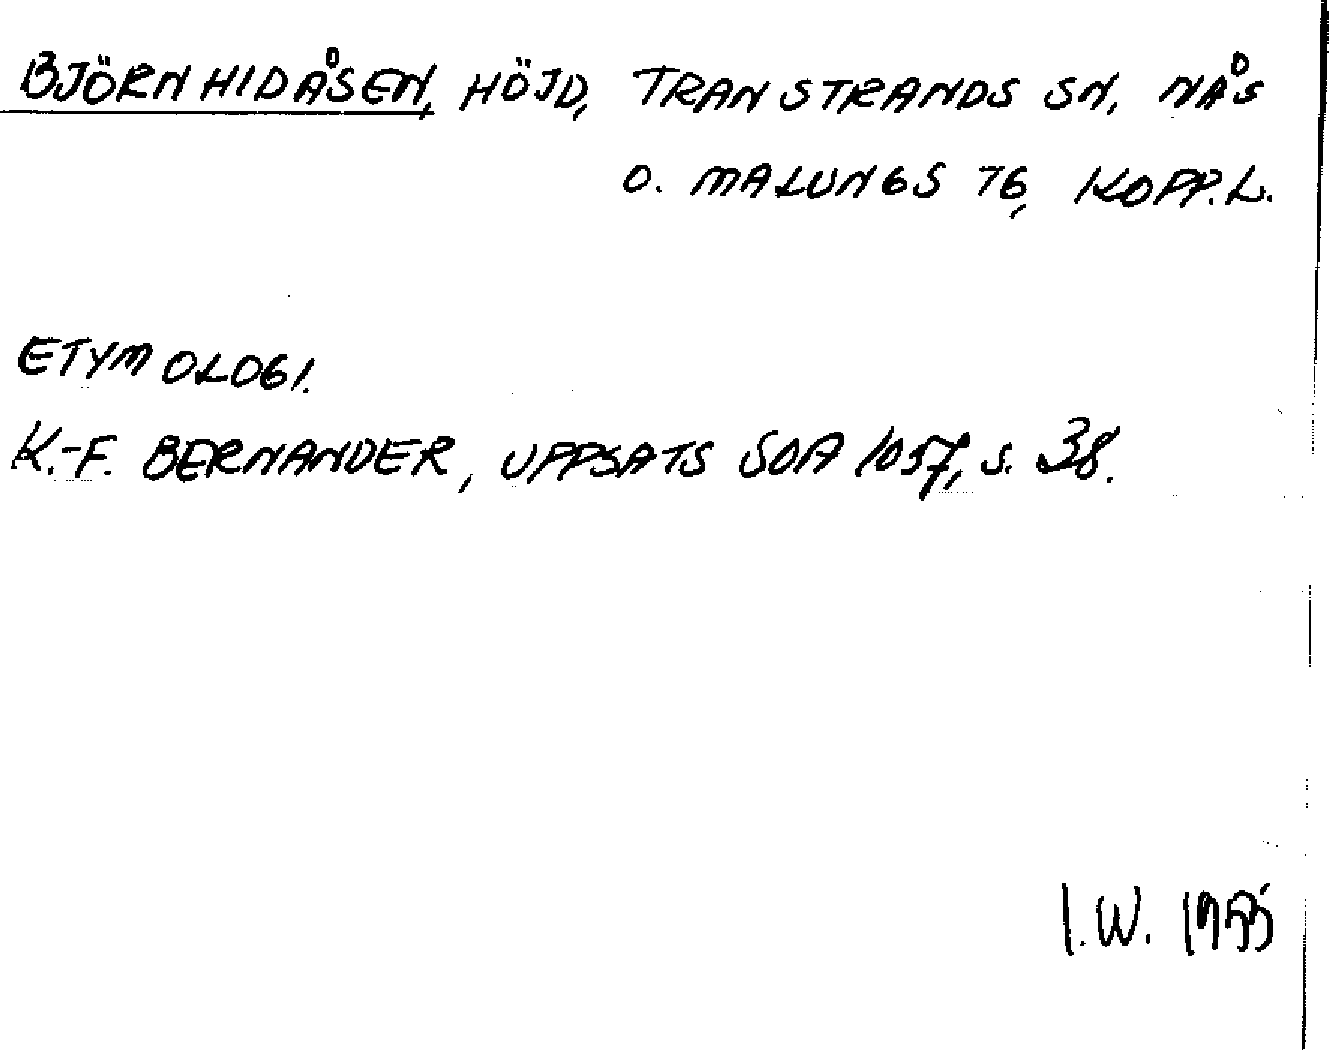 BJÖRNHIDÅSEN, HÖJD, TRANSTRANDS SN, NÅS
O. MALUNGS TG, KOPP.L.
ETYMOLOGI.
K.-F. BERNANDER, UPPSATS SOA 1057, S. 38.
I.W.